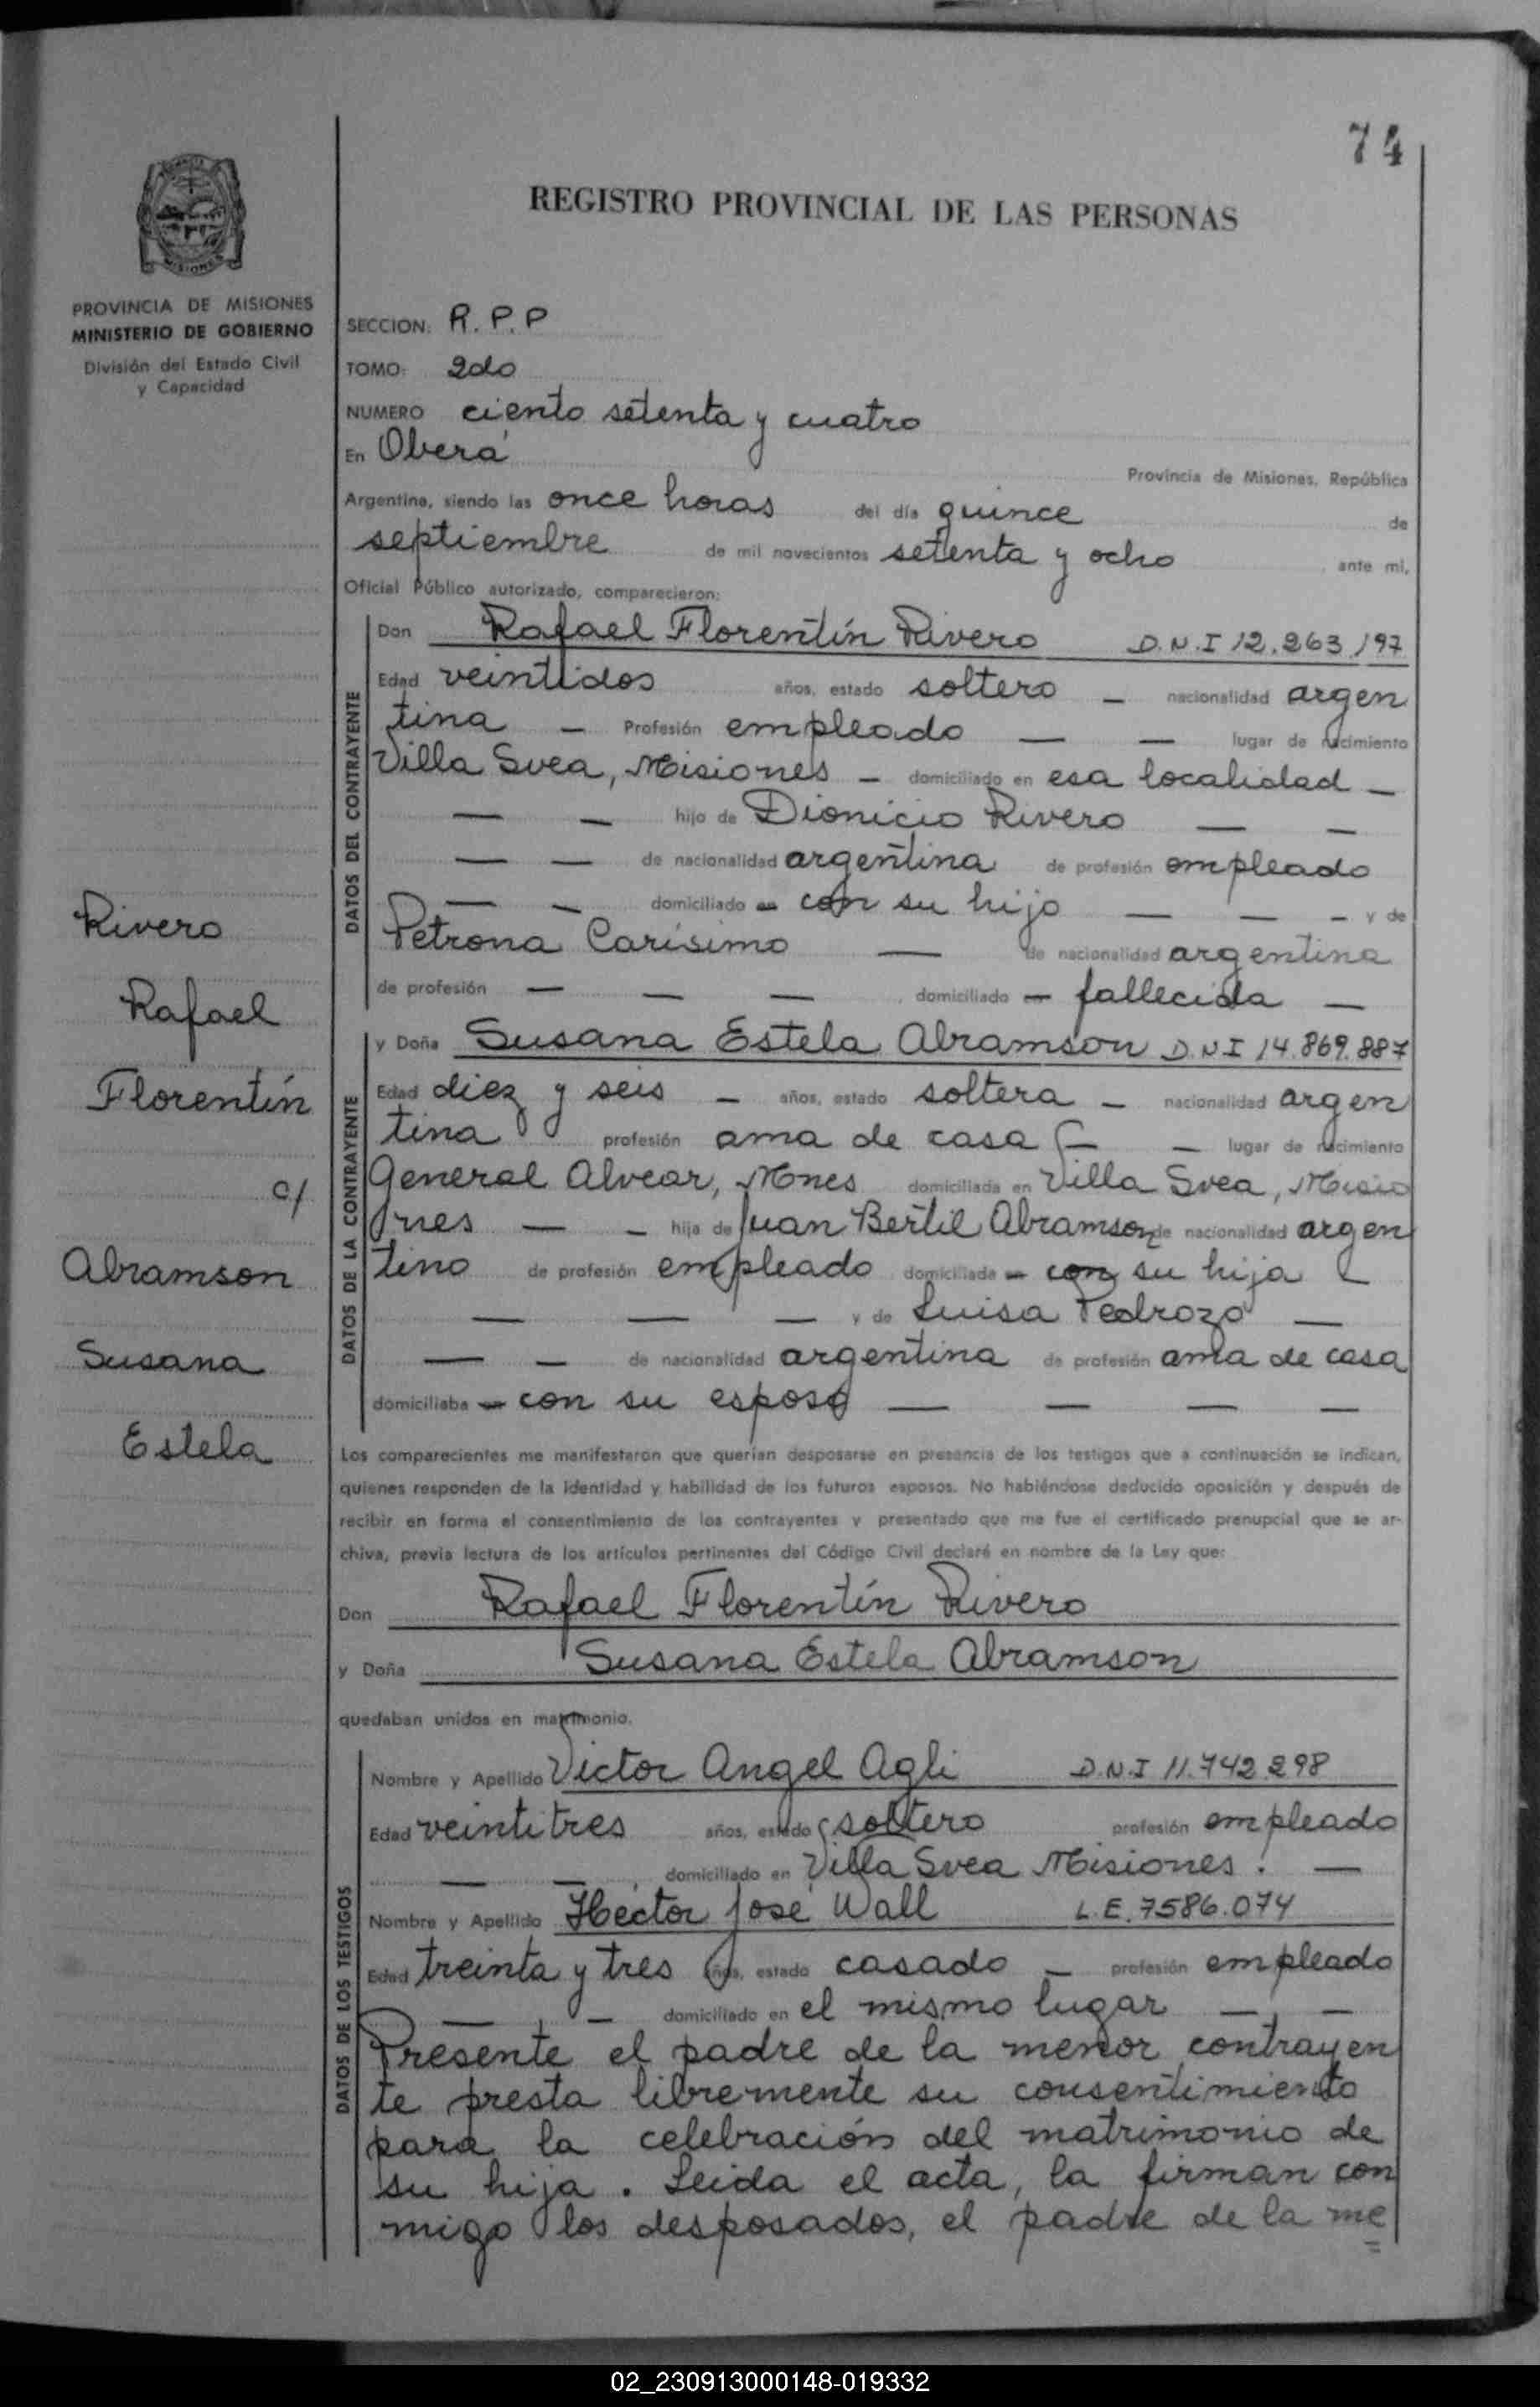 74
REGISTRO PROVINCIAL DE LAS PERSONAS
MISIONES
PROVINCIA DE MISIONES
MINISTERIO DE GOBIERNO
División del Estado Civil
y Capacidad
SECCION: R.P.P
TOMO: 2do
NUMERO ciento setenta y cuatro
En Oberá
Provincia de Misiones, República
Argentina, siendo las once horas del día quince de
septiembre de mil novecientos setenta y ocho, ante mi,
Oficial Público autorizado, comparecieron:
DATOS DEL CONTRAYENTE
Don Rafael Florentín Rivero D.N.I 12.263.197
Edad veintidos años, estado soltero — nacionalidad argen
tina — Profesión empleado — — lugar de nacimiento
Villa Svea, Misiones — domiciliado en esa localidad —
— — hijo de Dionicio Rivero — —
— — de nacionalidad argentina de profesión empleado
— — domiciliado en con su hijo — — — y de
Petrona Carísimo — de nacionalidad argentina
de profesión — — — , domiciliado en fallecida —
Rivero
Rafael
Florentín
c/
Abramson
Susana
Estela
DATOS DE LA CONTRAYENTE
y Doña Susana Estela Abramson D.N.I 14.869.887
Edad diez y seis — años, estado soltera — nacionalidad argen
tina profesión ama de casa — — lugar de nacimiento
General Alvear, Mnes domiciliada en Villa Svea, Misio
nes — — hija de Juan Bertil Abramson de nacionalidad argen
tino de profesión empleado domiciliada en con su hija —
— — — y de Luisa Pedrozo —
— — de nacionalidad argentina de profesión ama de casa
domiciliaba en con su esposo — — — —
Los comparecientes me manifestaron que querían desposarse en presencia de los testigos que a continuación se indican,
quienes responden de la identidad y habilidad de los futuros esposos. No habiéndose deducido oposición y después de
recibir en forma el consentimiento de los contrayentes y presentado que me fue el certificado prenupcial que se ar-
chiva, previa lectura de los artículos pertinentes del Código Civil declaré en nombre de la Ley que:
Don Rafael Florentín Rivero
y Doña Susana Estela Abramson
quedaban unidos en matrimonio.
DATOS DE LOS TESTIGOS
Nombre y Apellido Victor Angel Agli D.N.I 11.742.298
Edad veintitres años, estado soltero profesión empleado
— — , domiciliado en Villa Svea Misiones. —
Nombre y Apellido Héctor José Wall L.E. 7586.074
Edad treinta y tres años, estado casado — profesión empleado
— , — domiciliado en el mismo lugar — , —
Presente el padre de la menor contrayen
te presta libremente su consentimiento
para la celebración del matrimonio de
su hija . Leida el acta, la firman con
migo los desposados, el padre de la me
=
02_230913000148-019332